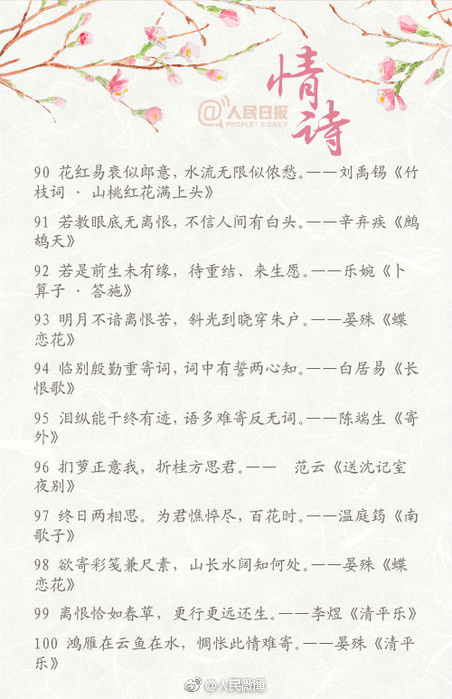 情诗
@人民日报
PEOPLE'S DAILY
90 花红易衰似郎意，水流无限似侬愁。——刘禹锡《竹
枝词 · 山桃红花满上头》
91 若教眼底无离恨，不信人间有白头。——辛弃疾《鹧
鸪天》
92 若是前生未有缘，待重结、来生愿。——乐婉《卜
算子 · 答施》
93 明月不谙离恨苦，斜光到晓穿朱户。——晏殊《蝶
恋花》
94 临别殷勤重寄词，词中有誓两心知。——白居易《长
恨歌》
95 泪纵能干终有迹，语多难寄反无词。——陈端生《寄
外》
96 扪萝正意我，折桂方思君。—— 范云《送沈记室
夜别》
97 终日两相思。为君憔悴尽，百花时。——温庭筠《南
歌子》
98 欲寄彩笺兼尺素，山长水阔知何处。——晏殊《蝶
恋花》
99 离恨恰如春草，更行更远还生。——李煜《清平乐》
100 鸿雁在云鱼在水，惆怅此情难寄。——晏殊《清平
乐》
@人民微博